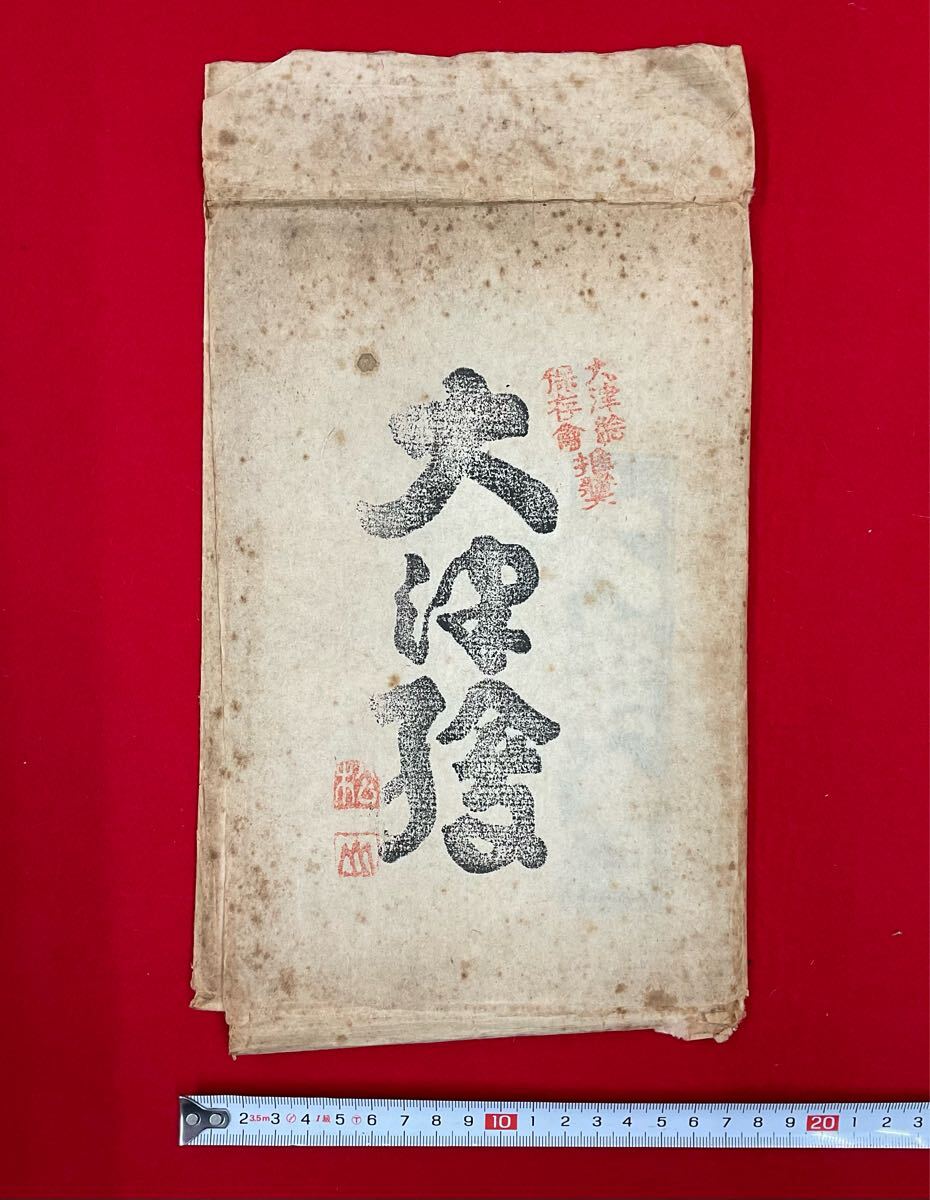 大津繪
保存會推奨
大津繪
松
山
2 3.5m 3 4 1級 5 6 7 8 9 10 1 2 3 4 5 6 7 8 9 20 1 2 3